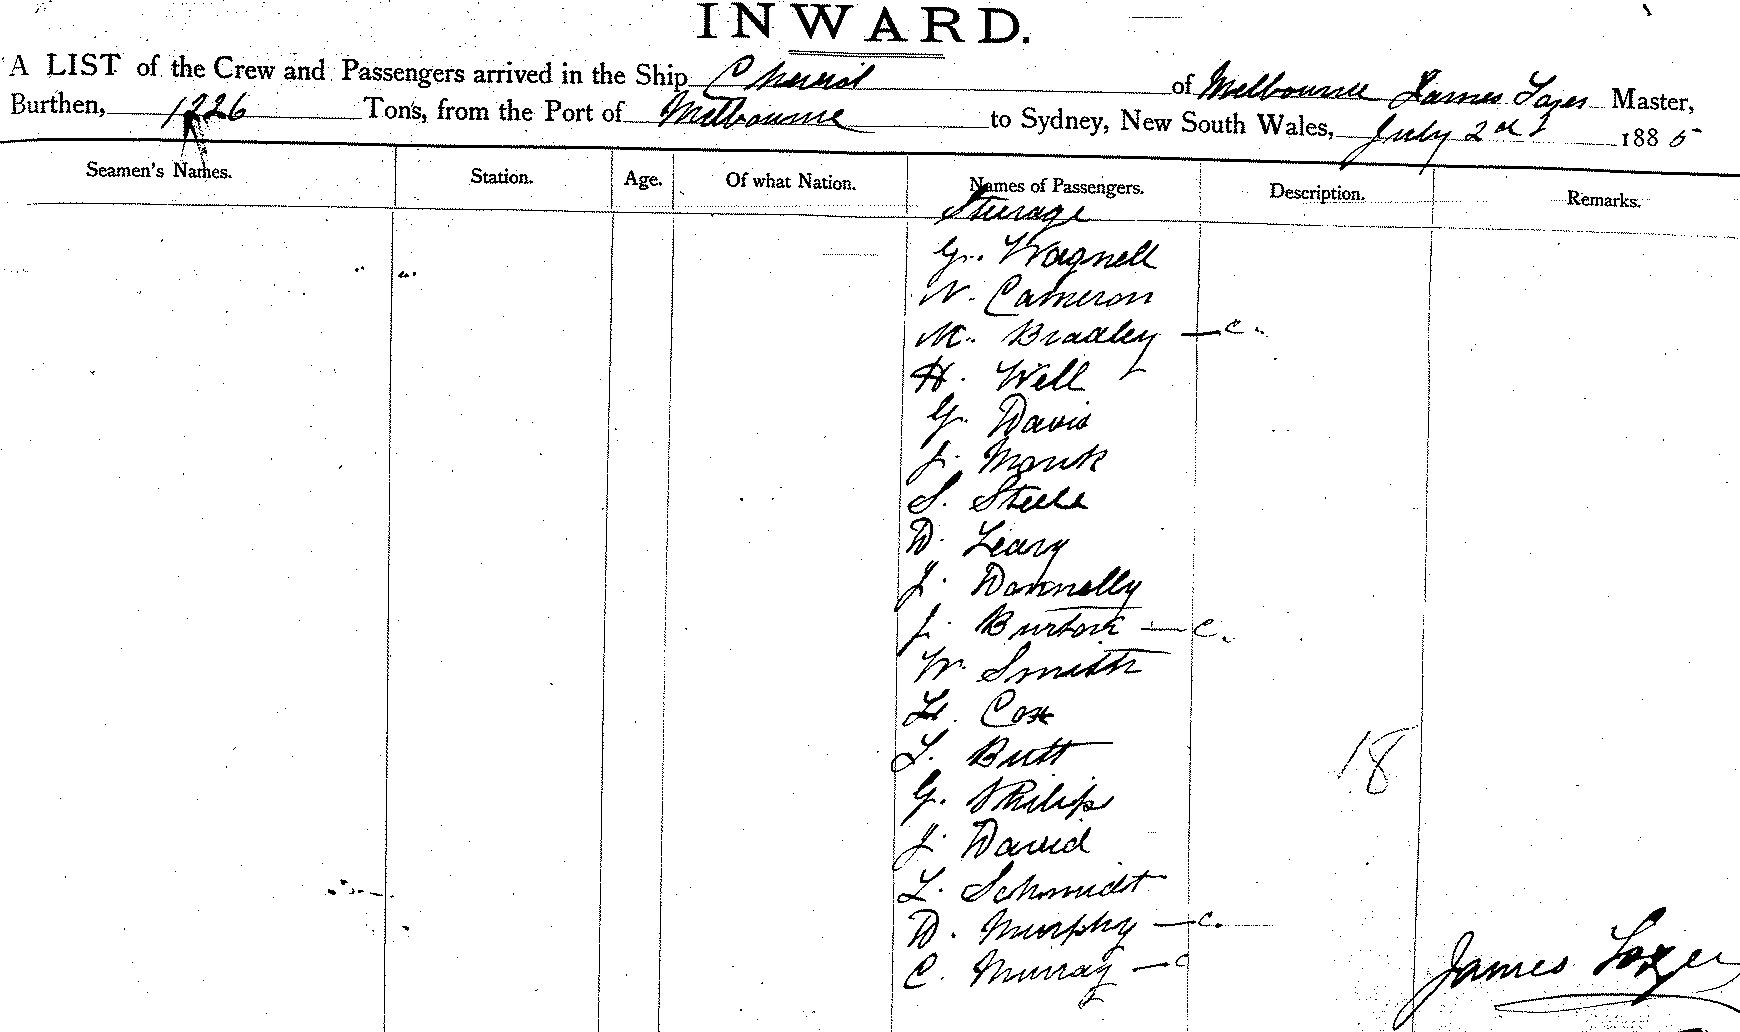 INWARD.
A LIST of the Crew and Passengers arrived in the Ship Cheviot of Melbourne James Tozer Master,
Burthen, 1226 Tons, from the Port of Melbourne to Sydney, New South Wales, July 2nd 1885
Seamen's Names. Station. Age. Of what Nation. Names of Passengers. Description. Remarks.
Steerage
G. Wagnell
N. Cameron
M. Bradley — c.
H. Well
G. Davis
J. Monk
S. Steele
D. Leary
J. Donnelly
J. Burton — c.
W. Smith
H. Cox
T. Butt
G. Philips
J. David
L. Schmidt
D. Murphy — c.
C. Murray — c
18
James Tozer